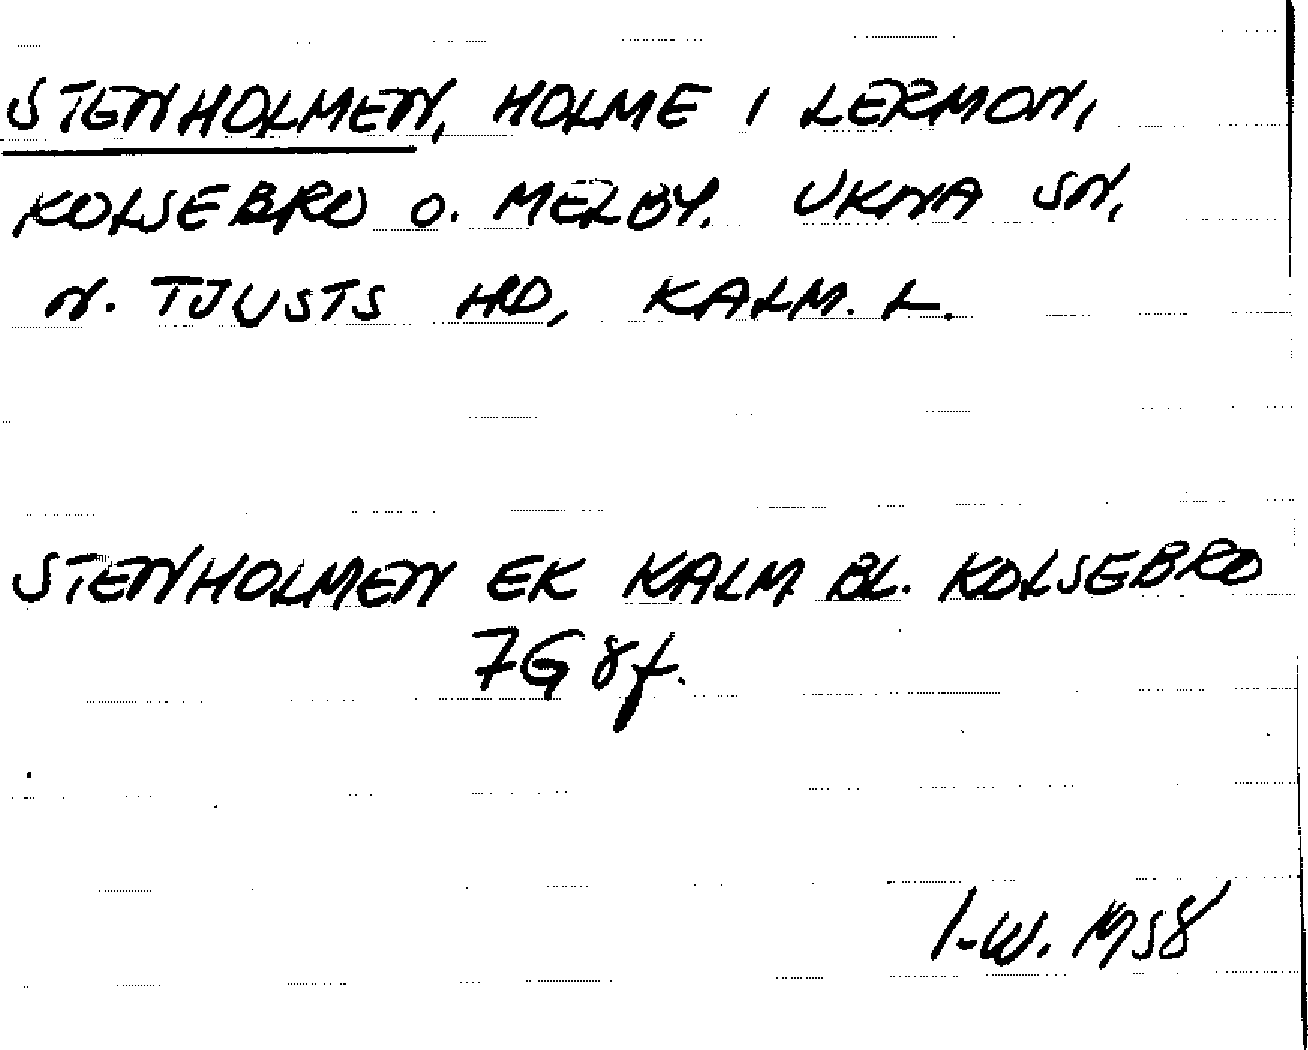 STENHOLMEN, HOLME I LERMON,
KOLSEBRO O. MELBY. UKNA SN,
N. TJUSTS HRD, KALM. L.
STENHOLMEN EK KALM BL. KOLSEBRO
7G 8f.
I-W. 1958